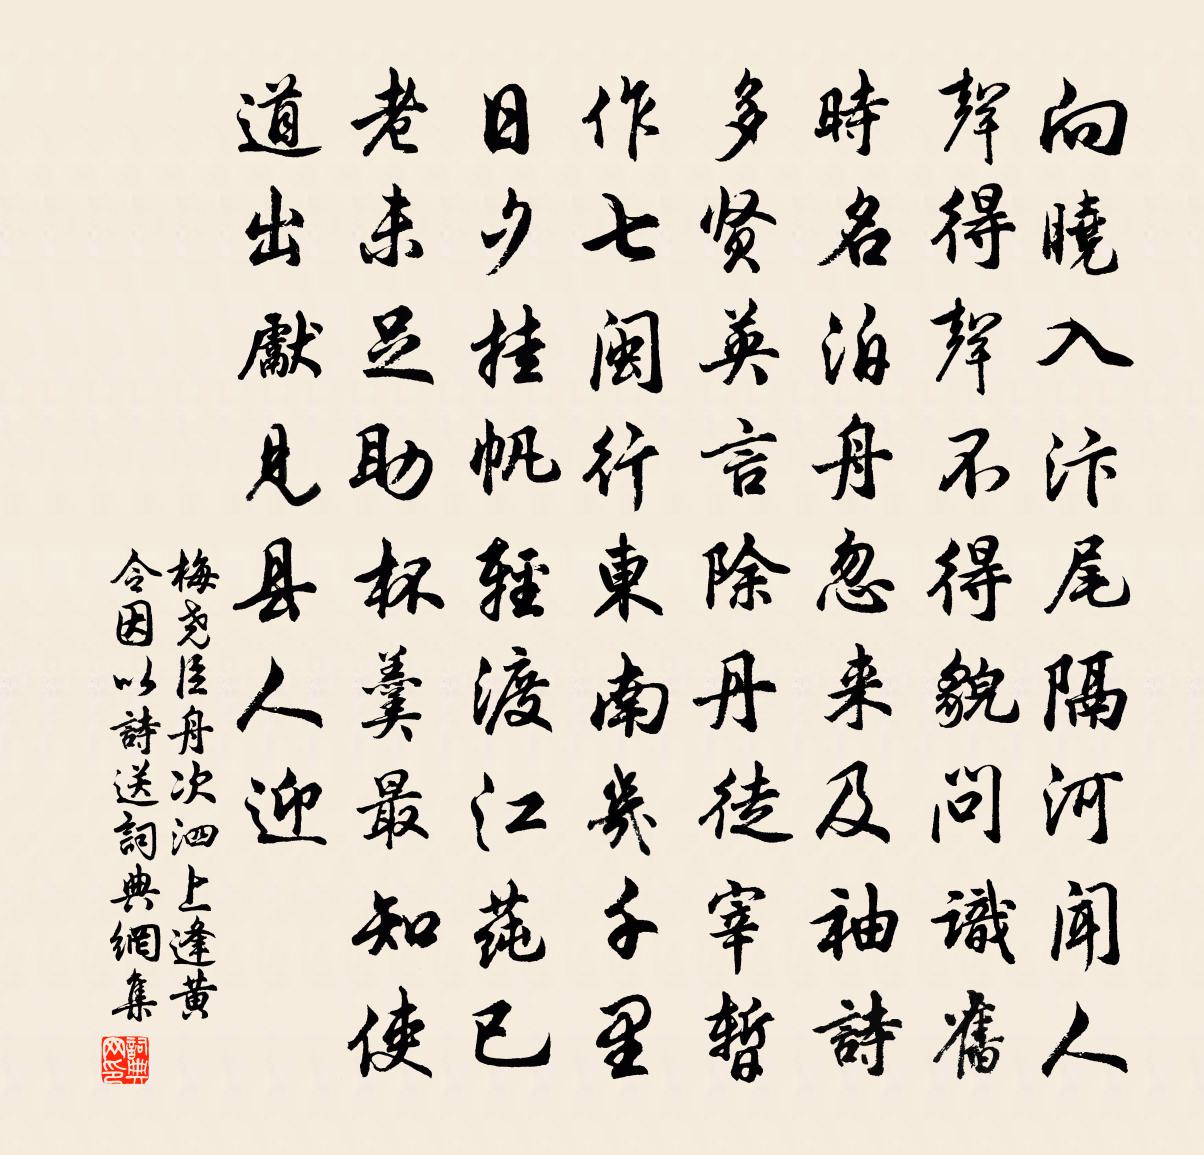 向曉入汴尾隔河聞人
聲得聲不得貌問識舊
時名泊舟忽来及袖詩
多贤英言除丹徒宰暫
作七閩行東南幾千里
日夕挂帆輕渡江蒓已
老未足助杯羹最知使
道出獻見县人迎
梅尧臣舟次泗上逢黄
令因以詩送詞典網集
詞典网印